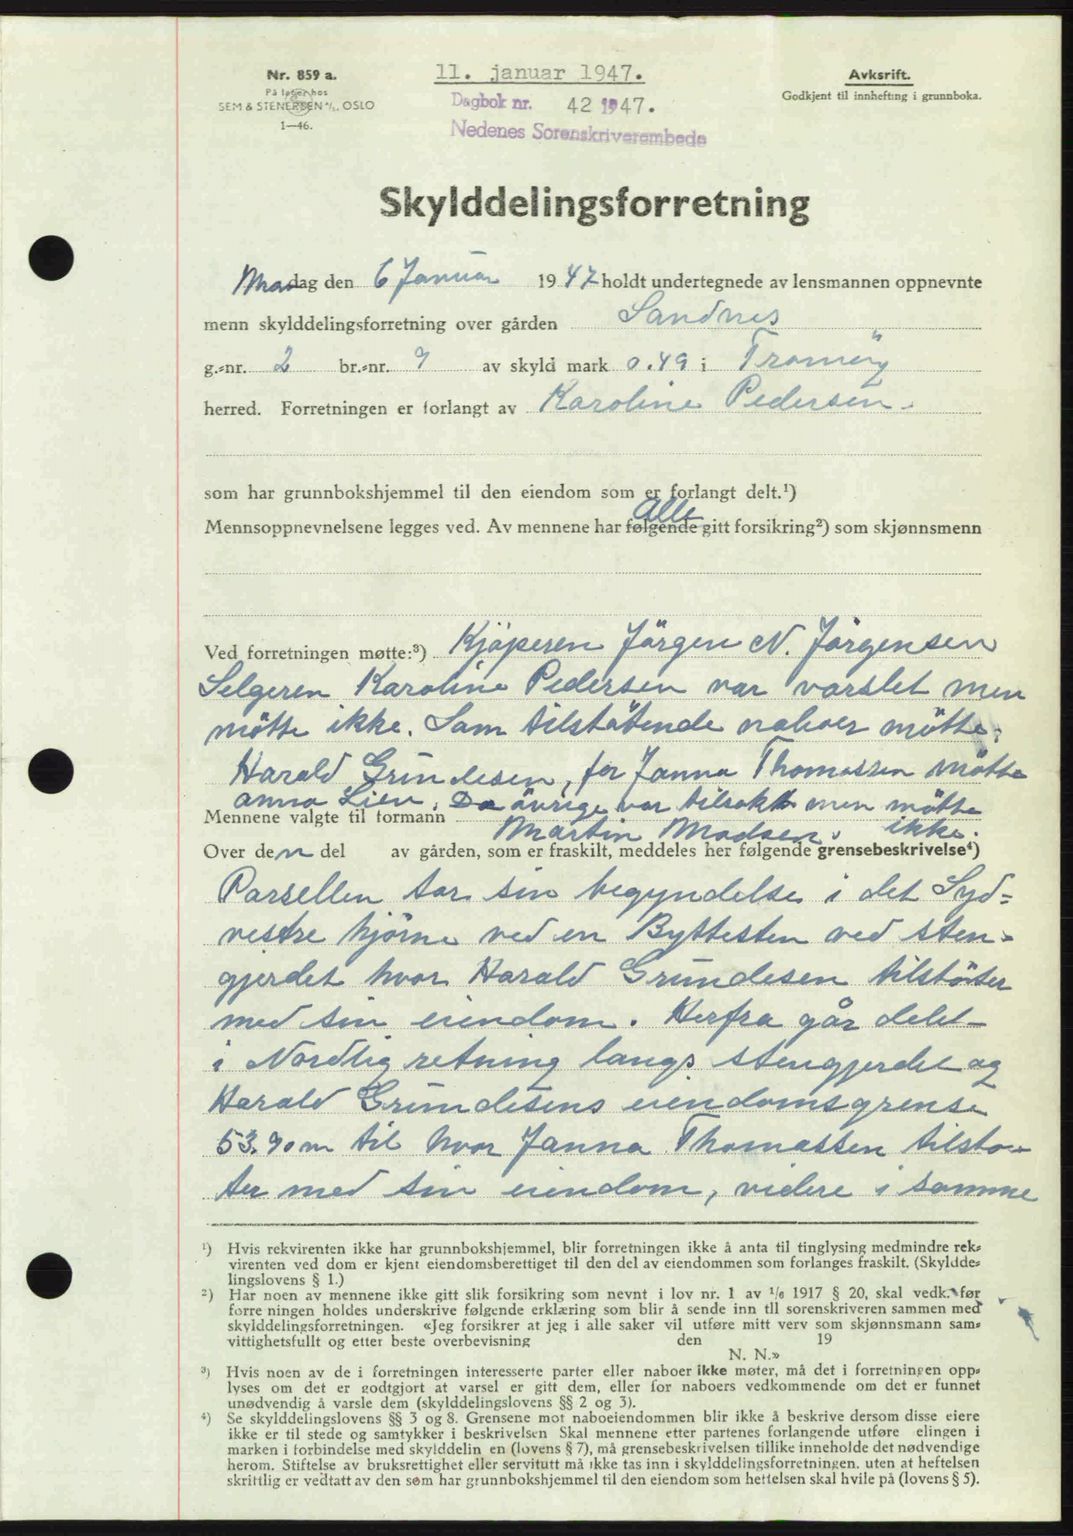 Nr. 859 a.
På lager hos
SEM & STENERSEN A/S, OSLO
1—46.
11. januar 1947.
Dagbok nr. 42 1947.
Nedenes Sorenskriverembede
Avksrift.
Godkjent til innhefting i grunnboka.
Skylddelingsforretning
Mandag den 6 Januar 1947 holdt undertegnede av lensmannen oppnevnte
menn skylddelingsforretning over gården Sandnes
g.-nr. 2 br.-nr. 9 av skyld mark 0.49 i Tromöy
herred. Forretningen er forlangt av Karoline Pedersen.
som har grunnbokshjemmel til den eiendom som er forlangt delt.¹)
Alle
Mennsoppnevnelsene legges ved. Av mennene har følgende gitt forsikring²) som skjønnsmenn
Ved forretningen møtte:³) Kjöperen Jörgen N. Jörgensen
Selgeren Karoline Pedersen var varslet men
mötte ikke. Som tilstötende naboer mötte:
Harald Grundesen, for Janna Thomassen mötte
Anna Lien. De övrige var tilsakt men mötte
ikke.
Mennene valgte til formann Martin Madsen.
Over den del av gården, som er fraskilt, meddeles her følgende grensebeskrivelse⁴)
Parsellen tar sin begyndelse i det Syd=
vestre hjörne ved en Byttesten ved sten=
gjerdet hvor Harald Grundesen tilstöter
med sin eiendom. Herfra går delet
i Nordlig retning langs stengjerdet og
Harald Grundesens eiendomsgrense
53.90 m til hvor Janna Thomassen tilstö-
ter med sin eiendom, videre i samme
¹) Hvis rekvirenten ikke har grunnbokshjemmel, blir forretningen ikke å anta til tinglysing medmindre rek-
virenten ved dom er kjent eiendomsberettiget til den del av eiendommen som forlanges fraskilt. (Skyldde-
lingslovens § 1.)
²) Har noen av mennene ikke gitt slik forsikring som nevnt i lov nr. 1 av 1/6 1917 § 20, skal vedk. før
forretningen holdes underskrive følgende erklæring som blir å sende inn til sorenskriveren sammen med
skylddelingsforretningen. «Jeg forsikrer at jeg i alle saker vil utføre mitt verv som skjønnsmann sam-
vittighetsfullt og etter beste overbevisning den 19
N. N.»
³) Hvis noen av de i forretningen interesserte parter eller naboer ikke møter, må det i forretningen opp-
lyses om det er godtgjort at varsel er gitt dem, eller for naboers vedkommende om det er funnet
unødvendig å varsle dem (skylddelingslovens §§ 2 og 3).
⁴) Se skylddelingslovens §§ 3 og 8. Grensene mot naboeiendommen blir ikke å beskrive dersom disse eiere
ikke er til stede og samtykker i beskrivelsen Skal mennene etter partenes forlangende utføre elingen i
marken i forbindelse med skylddelin en (lovens § 7), må grensebeskrivelsen tillike inneholde det nødvendige
herom. Stiftelse av bruksrettighet eller servitutt må ikke tas inn i skylddelingsforretningen, uten at heftelsen
skriftlig er vedtatt av den som har grunnbokshjemmel til den eiendom som heftelsen skal hvile på (lovens § 5).